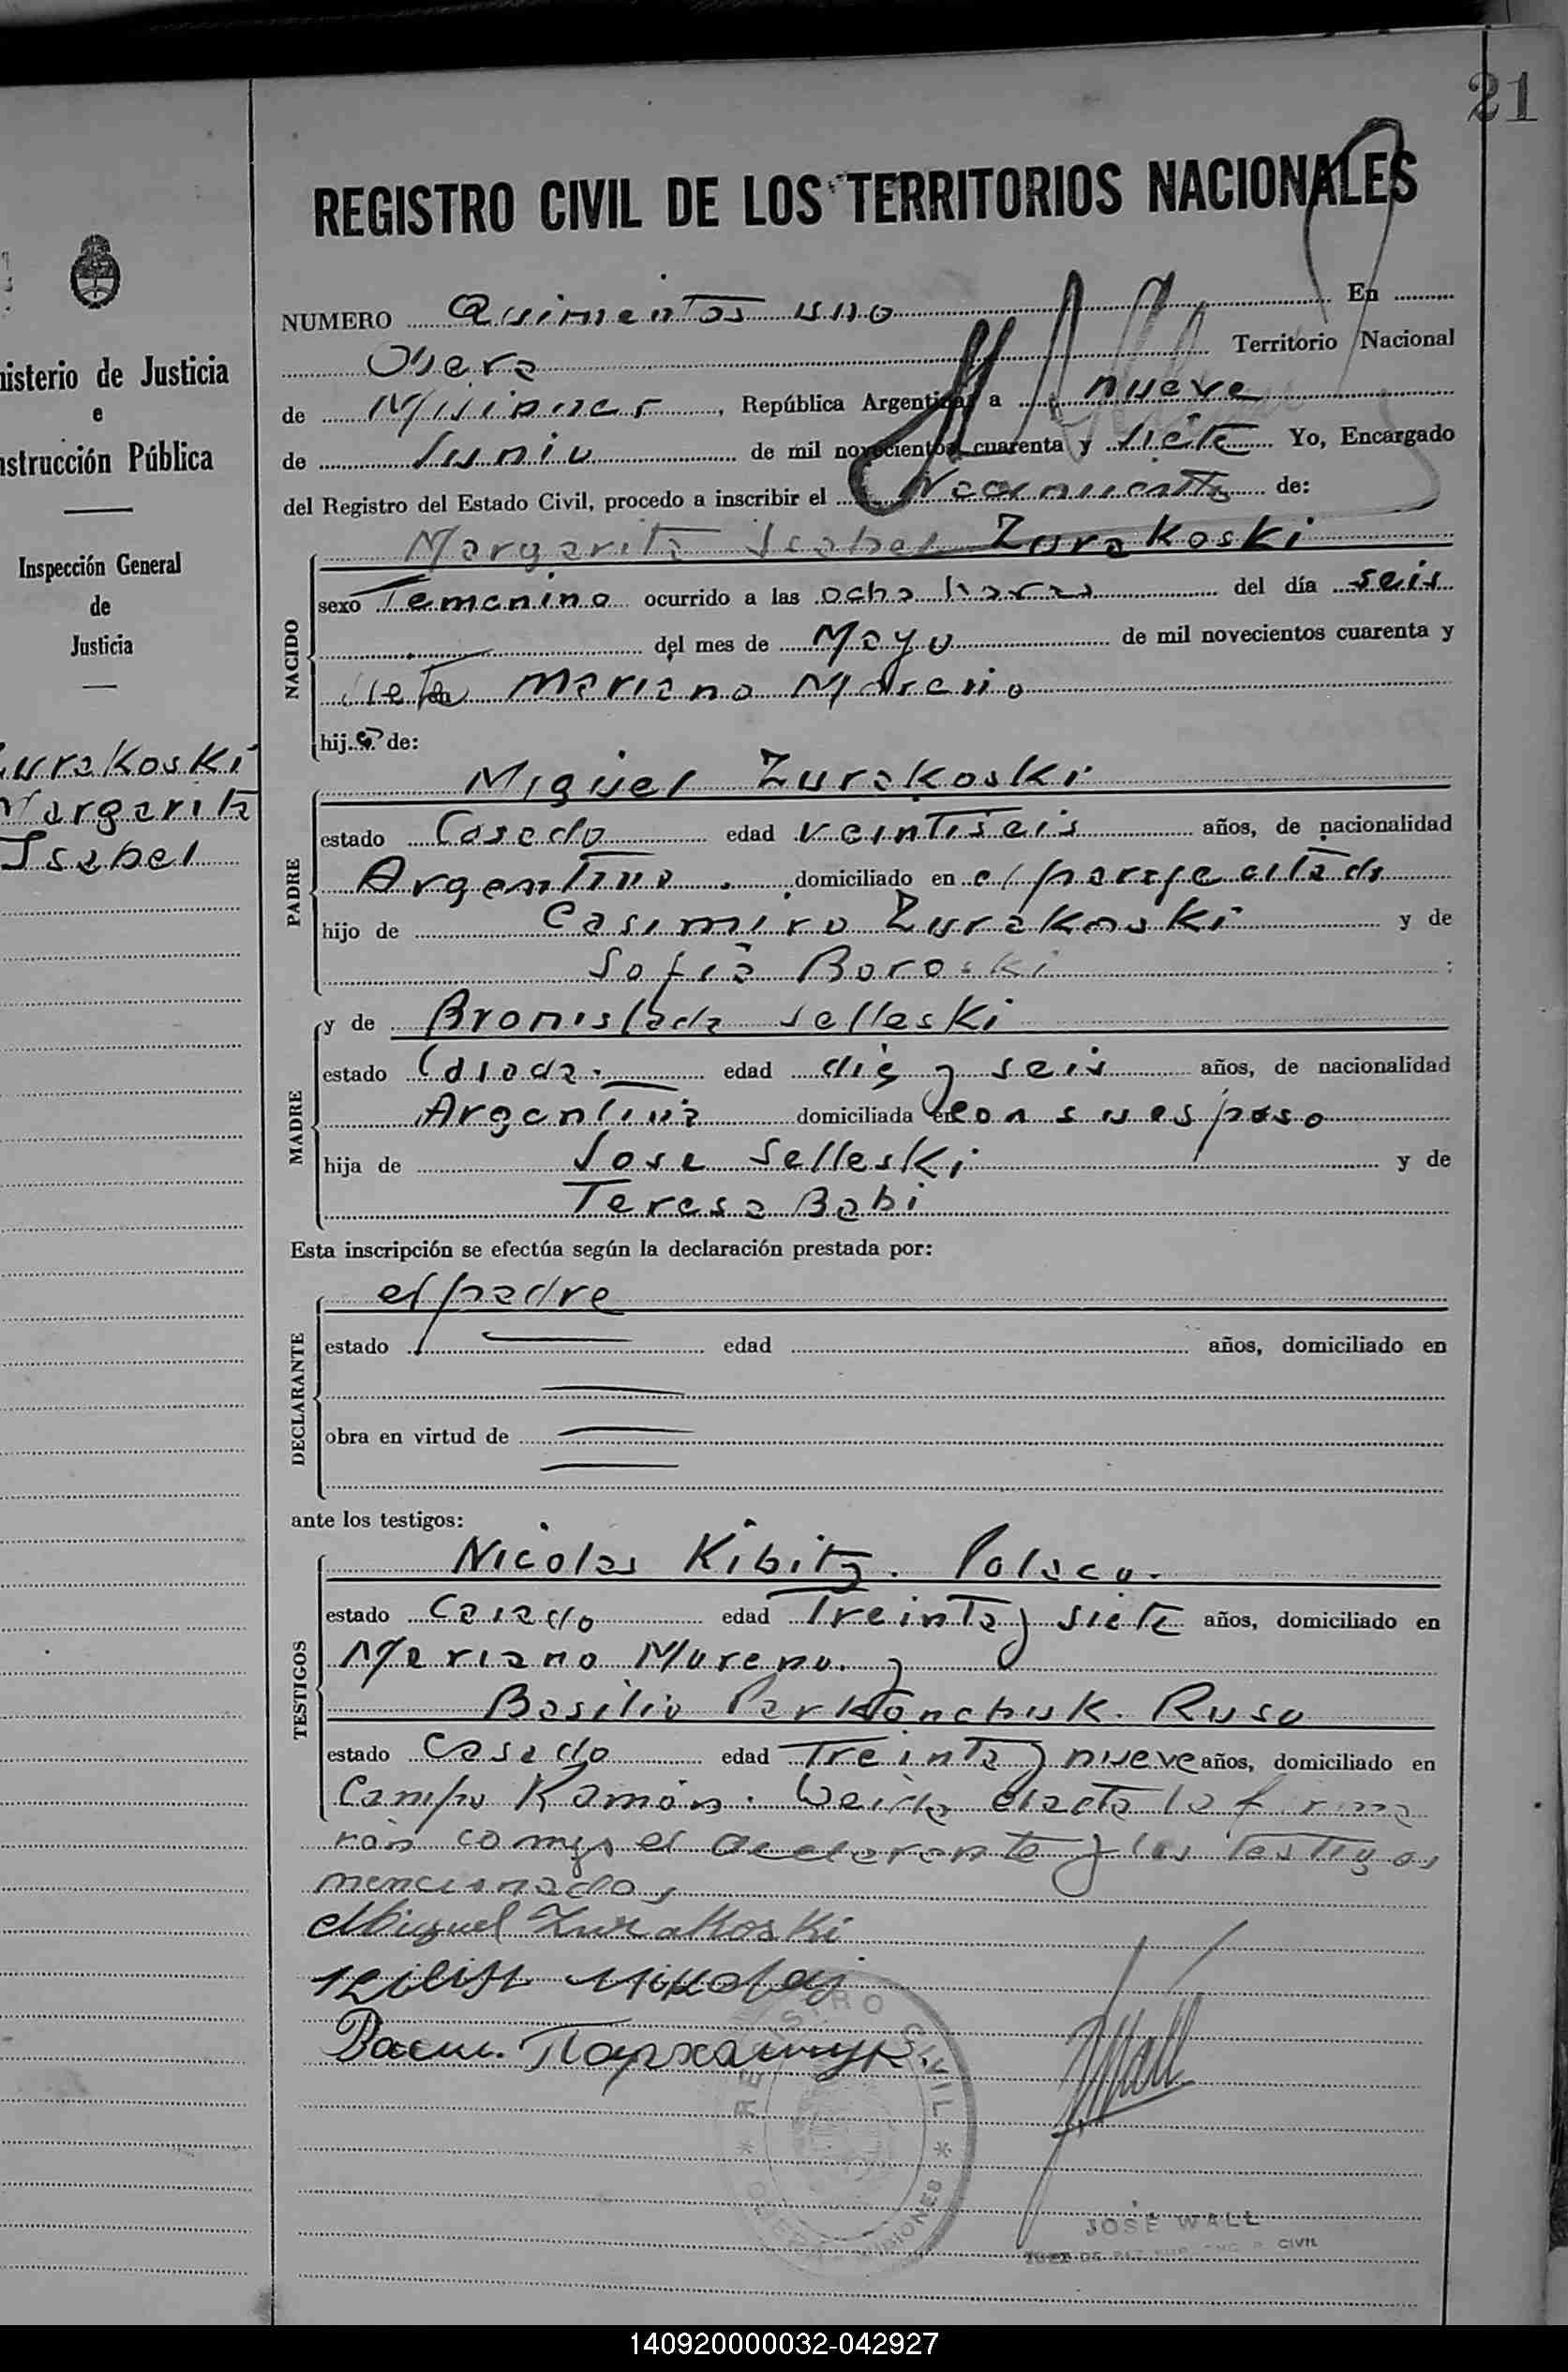 21
REGISTRO CIVIL DE LOS TERRITORIOS NACIONALES
nisterio de Justicia
e
nstrucción Pública
Inspección General
de
Justicia
urakoski
Margarita
Isabel
NUMERO Quinientos uno En
Obera Territorio Nacional
de Misiones, República Argentina, a nueve
de Junio de mil novecientos cuarenta y siete Yo, Encargado
del Registro del Estado Civil, procedo a inscribir el Nacimiento de:
NACIDO
Margarita Isabel Zurakoski
sexo Femenino ocurrido a las ocho horas del día seis
del mes de Mayo de mil novecientos cuarenta y
siete en Mariano Moreno
hija de:
PADRE
Miguel Zurakoski
estado Casado edad veintiseis años, de nacionalidad
Argentino domiciliado en el paraje citado
hijo de Casimiro Zurakoski y de
Sofia Boroski
MADRE
y de Bronislada Selleski
estado Casada edad diez y seis años, de nacionalidad
Argentina domiciliada en con su esposo
hija de Jose Selleski y de
Teresa Babi
Esta inscripción se efectúa según la declaración prestada por:
DECLARANTE
el padre
estado edad años, domiciliado en
obra en virtud de
ante los testigos:
TESTIGOS
Nicolas Kibitz. Polaco.
estado Casado edad Treinta y siete años, domiciliado en
Mariano Moreno. y
Basilio Parkonchuk. Ruso
estado Casado edad Treinta y nueve años, domiciliado en
Campo Ramón. Leida el acta la firma
ron comigo el declarante y los testigos
mencionados
Miguel Zurakoski
Mikolaj
REGISTRO CIVIL
OBERA MISIONES
JOSÉ WALL
JUEZ DE PAZ SUP. ENC. R. CIVIL
140920000032-042927